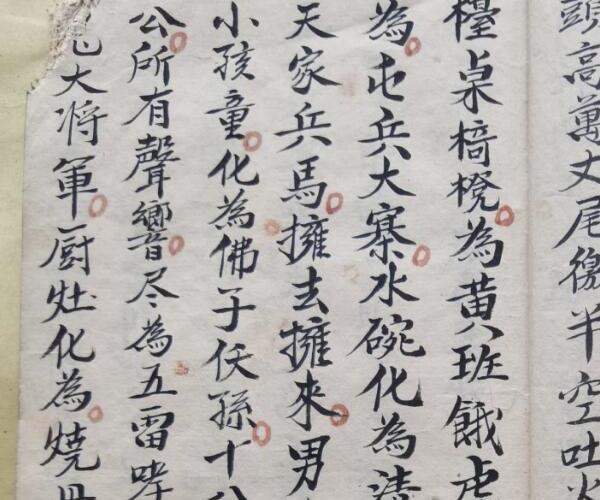 頭高萬丈尾徼半空吐火
檯桌椅櫈為黃班餓虎
為屯兵大寨水碗化為
天家兵馬擁去擁來男
小孩童化為佛子伖孫十
公所有聲響尽為五雷哮
大将軍厨灶化為燒